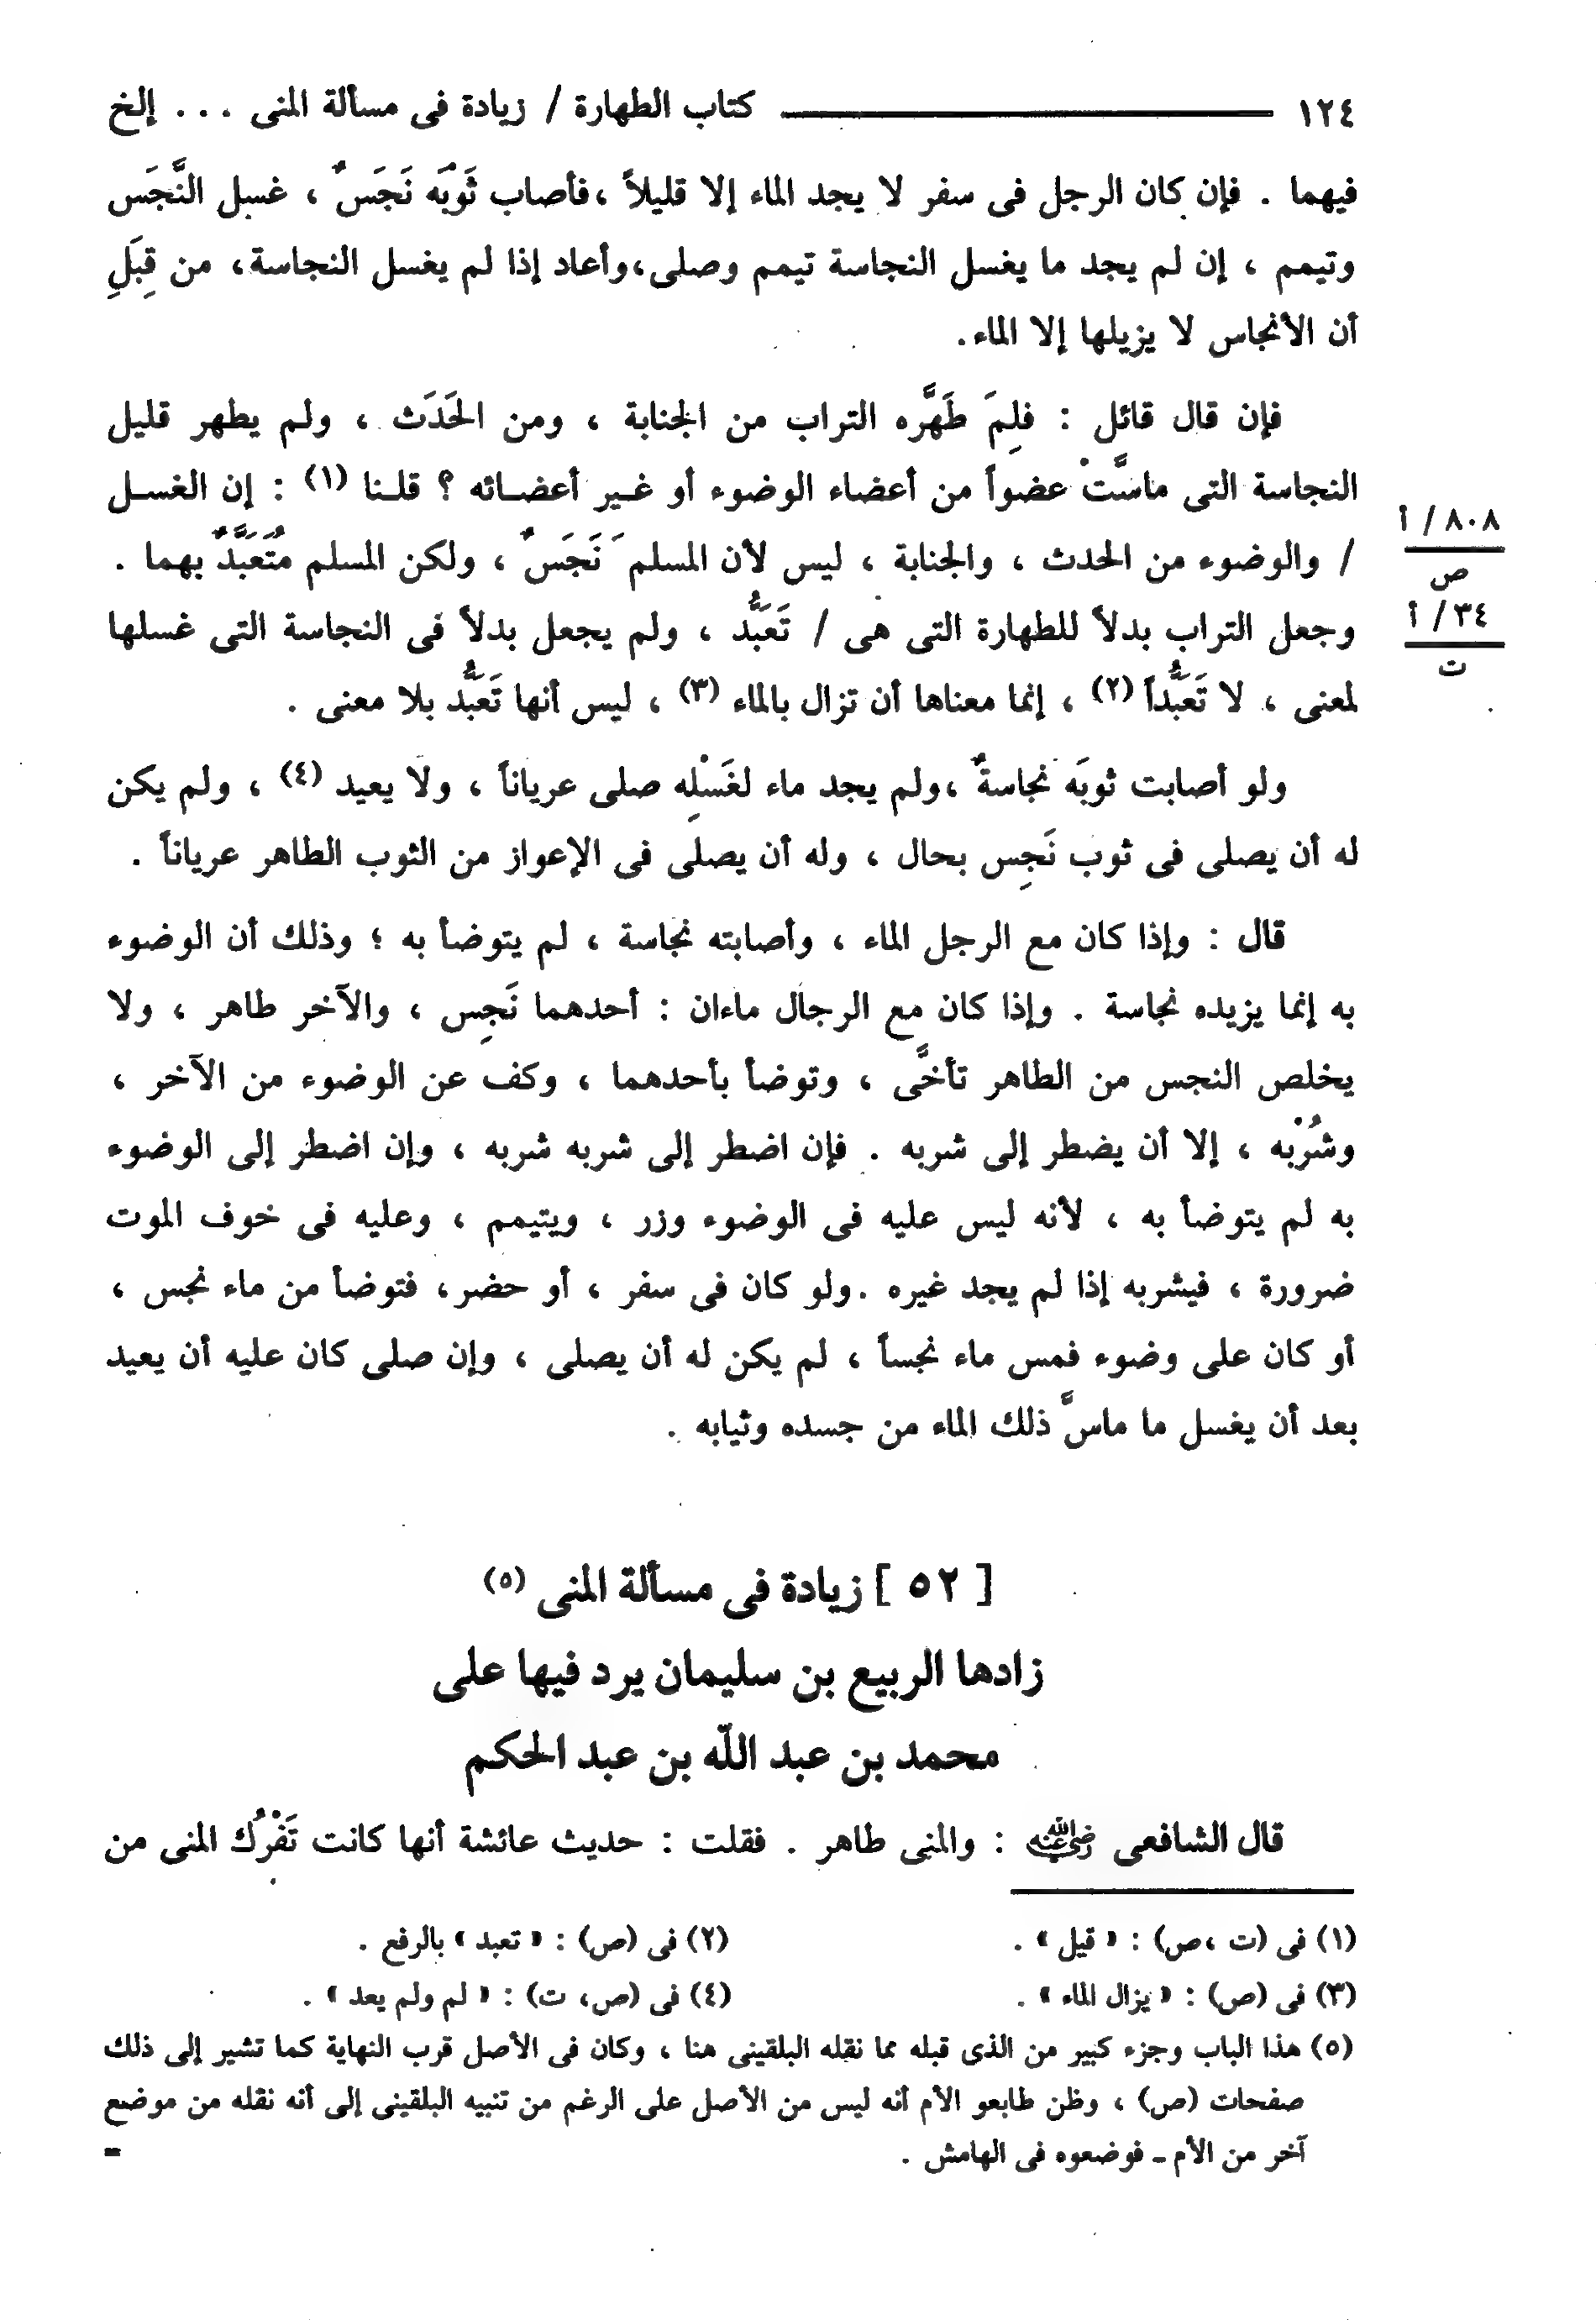 ١٢٤ كتاب الطهارة / زيادة فى مسألة المنى . . . إلخ
فيهما . فإن كان الرجل فى سفر لا يجد الماء إلا قليلاً ،فأصاب ثَوْبَه نَجَسٌ ، غسل النَّجَس
وتيمم ، إن لم يجد ما يغسل النجاسة تيمم وصلى،وأعاد إذا لم يغسل النجاسة، من قِبَلِ
أن الأنجاس لا يزيلها إلا الماء.
فإن قال قائل : فلِمَ طَهَّره التراب من الجنابة ، ومن الحَدَث ، ولم يطهر قليل
النجاسة التى ماسَّتْ عضواً من أعضاء الوضوء أو غـير أعضـائه ؟ قلـنا (١) : إن الغسـل
/ والوضوء من الحدث ، والجنابة ، ليس لأن المسلم نَجَسٌ ، ولكن المسلم مُتَعَبَّدٌ بهما .
وجعل التراب بدلاً للطهارة التى هى / تَعَبُّد ، ولم يجعل بدلاً فى النجاسة التى غسلها
لمعنى ، لا تَعَبُّداً (٢) ، إنما معناها أن تزال بالماء (٣) ، ليس أنها تَعَبُّد بلا معنى .
٨٠٨ / أ
ص
٣٤ / أ
ت
ولو أصابت ثوبَه نجاسةٌ ،ولم يجد ماء لغَسْلِه صلى عرياناً ، ولا يعيد (٤) ، ولم يكن
له أن يصلى فى ثوب نَجِس بحال ، وله أن يصلى فى الإعواز من الثوب الطاهر عرياناً .
قال : وإذا كان مع الرجل الماء ، وأصابته نجاسة ، لم يتوضأ به ؛ وذلك أن الوضوء
به إنما يزيده نجاسة . وإذا كان مع الرجال ماءان : أحدهما نَجِس ، والآخر طاهر ، ولا
يخلص النجس من الطاهر تأخَّى ، وتوضأ بأحدهما ، وكف عن الوضوء من الآخر ،
وشُرْبه ، إلا أن يضطر إلى شربه . فإن اضطر إلى شربه شربه ، وإن اضطر إلى الوضوء
به لم يتوضأ به ، لأنه ليس عليه فى الوضوء وزر ، ويتيمم ، وعليه فى خوف الموت
ضرورة ، فيشربه إذا لم يجد غيره .ولو كان فى سفر ، أو حضر، فتوضأ من ماء نجس ،
أو كان على وضوء فمس ماء نجساً ، لم يكن له أن يصلى ، وإن صلى كان عليه أن يعيد
بعد أن يغسل ما ماسَّ ذلك الماء من جسده وثيابه .
[ ٥٢ ] زيادة فى مسألة المنى (٥)
زادها الربيع بن سليمان يرد فيها على
محمد بن عبد اللّه بن عبد الحكم
قال الشافعى رضي الله عنه : والمنى طاهر . فقلت : حديث عائشة أنها كانت تَفْرُك المنى من
(١) فى (ت ،ص) : « قيل » .
(٢) فى (ص) : « تعبد » بالرفع .
(٣) فى (ص) : « يزال الماء » .
(٤) فى (ص، ت) : « لم ولم يعد » .
(٥) هذا الباب وجزء كبير من الذى قبله مما نقله البلقينى هنا ، وكان فى الأصل قرب النهاية كما تشير إلى ذلك
صفحات (ص) ، وظن طابعو الأم أنه ليس من الأصل على الرغم من تنبيه البلقينى إلى أنه نقله من موضع
آخر من الأم ـ فوضعوه فى الهامش . =